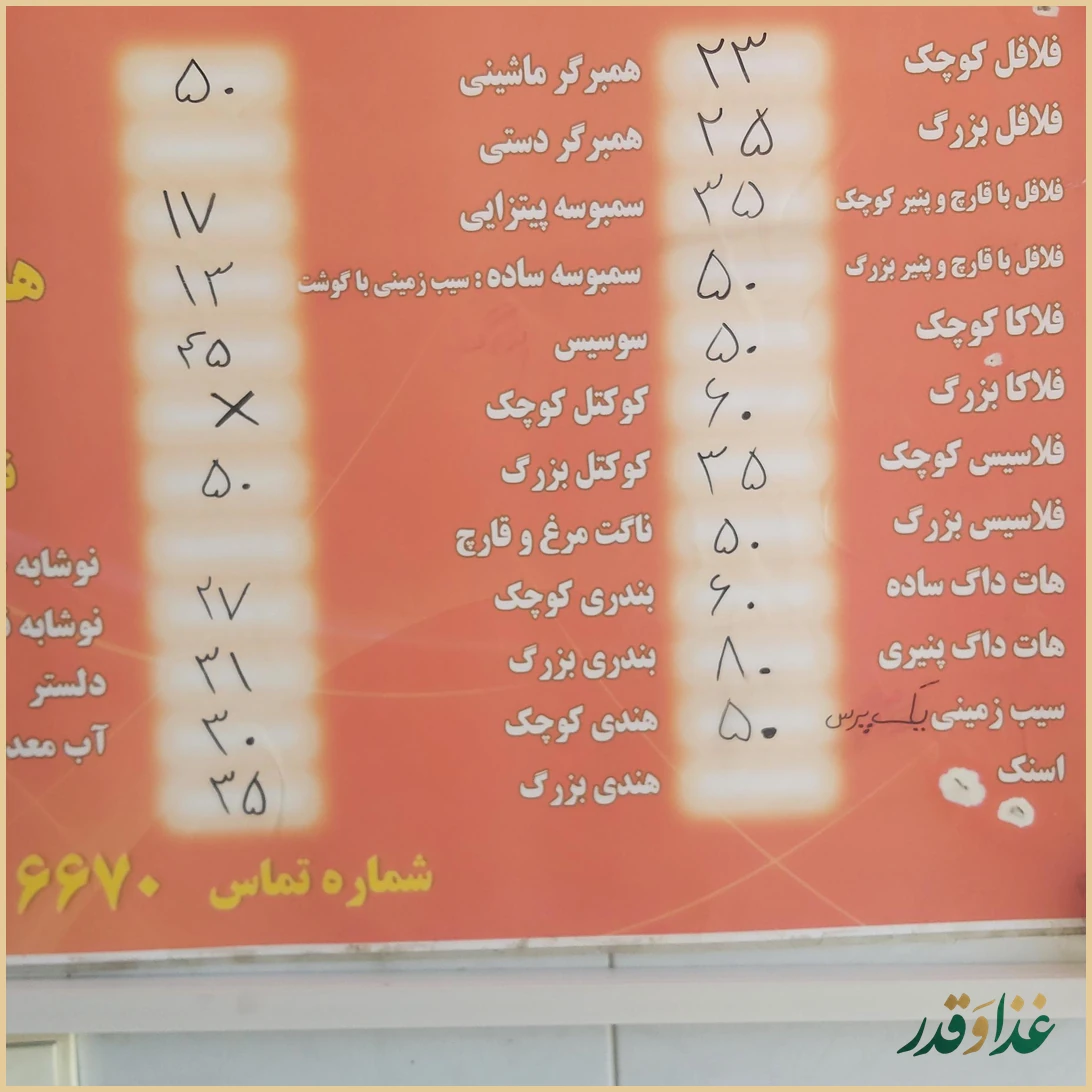 فلافل کوچک ۲۳
فلافل بزرگ ۲۵
فلافل با قارچ و پنیر کوچک ۳۵
فلافل با قارچ و پنیر بزرگ ۵۰
فلاکا کوچک ۵۰
فلاکا بزرگ ۶۰
فلاسیس کوچک ۳۵
فلاسیس بزرگ ۵۰
هات داگ ساده ۶۰
هات داگ پنیری ۸۰
سیب زمینی یک پرس ۵۰
اسنک
همبرگر ماشینی ۵۰
همبرگر دستی
سمبوسه پیتزایی ۱۷
سمبوسه ساده : سیب زمینی با گوشت ۱۳
سوسیس ۴۵
کوکتل کوچک ×
کوکتل بزرگ ۵۰
ناگت مرغ و قارچ
بندری کوچک ۲۷
بندری بزرگ ۳۱
هندی کوچک ۳۰
هندی بزرگ ۳۵
نوشابه
نوشابه
دلستر
آب
شماره تماس ۶۶۷۰
غذا و قدر